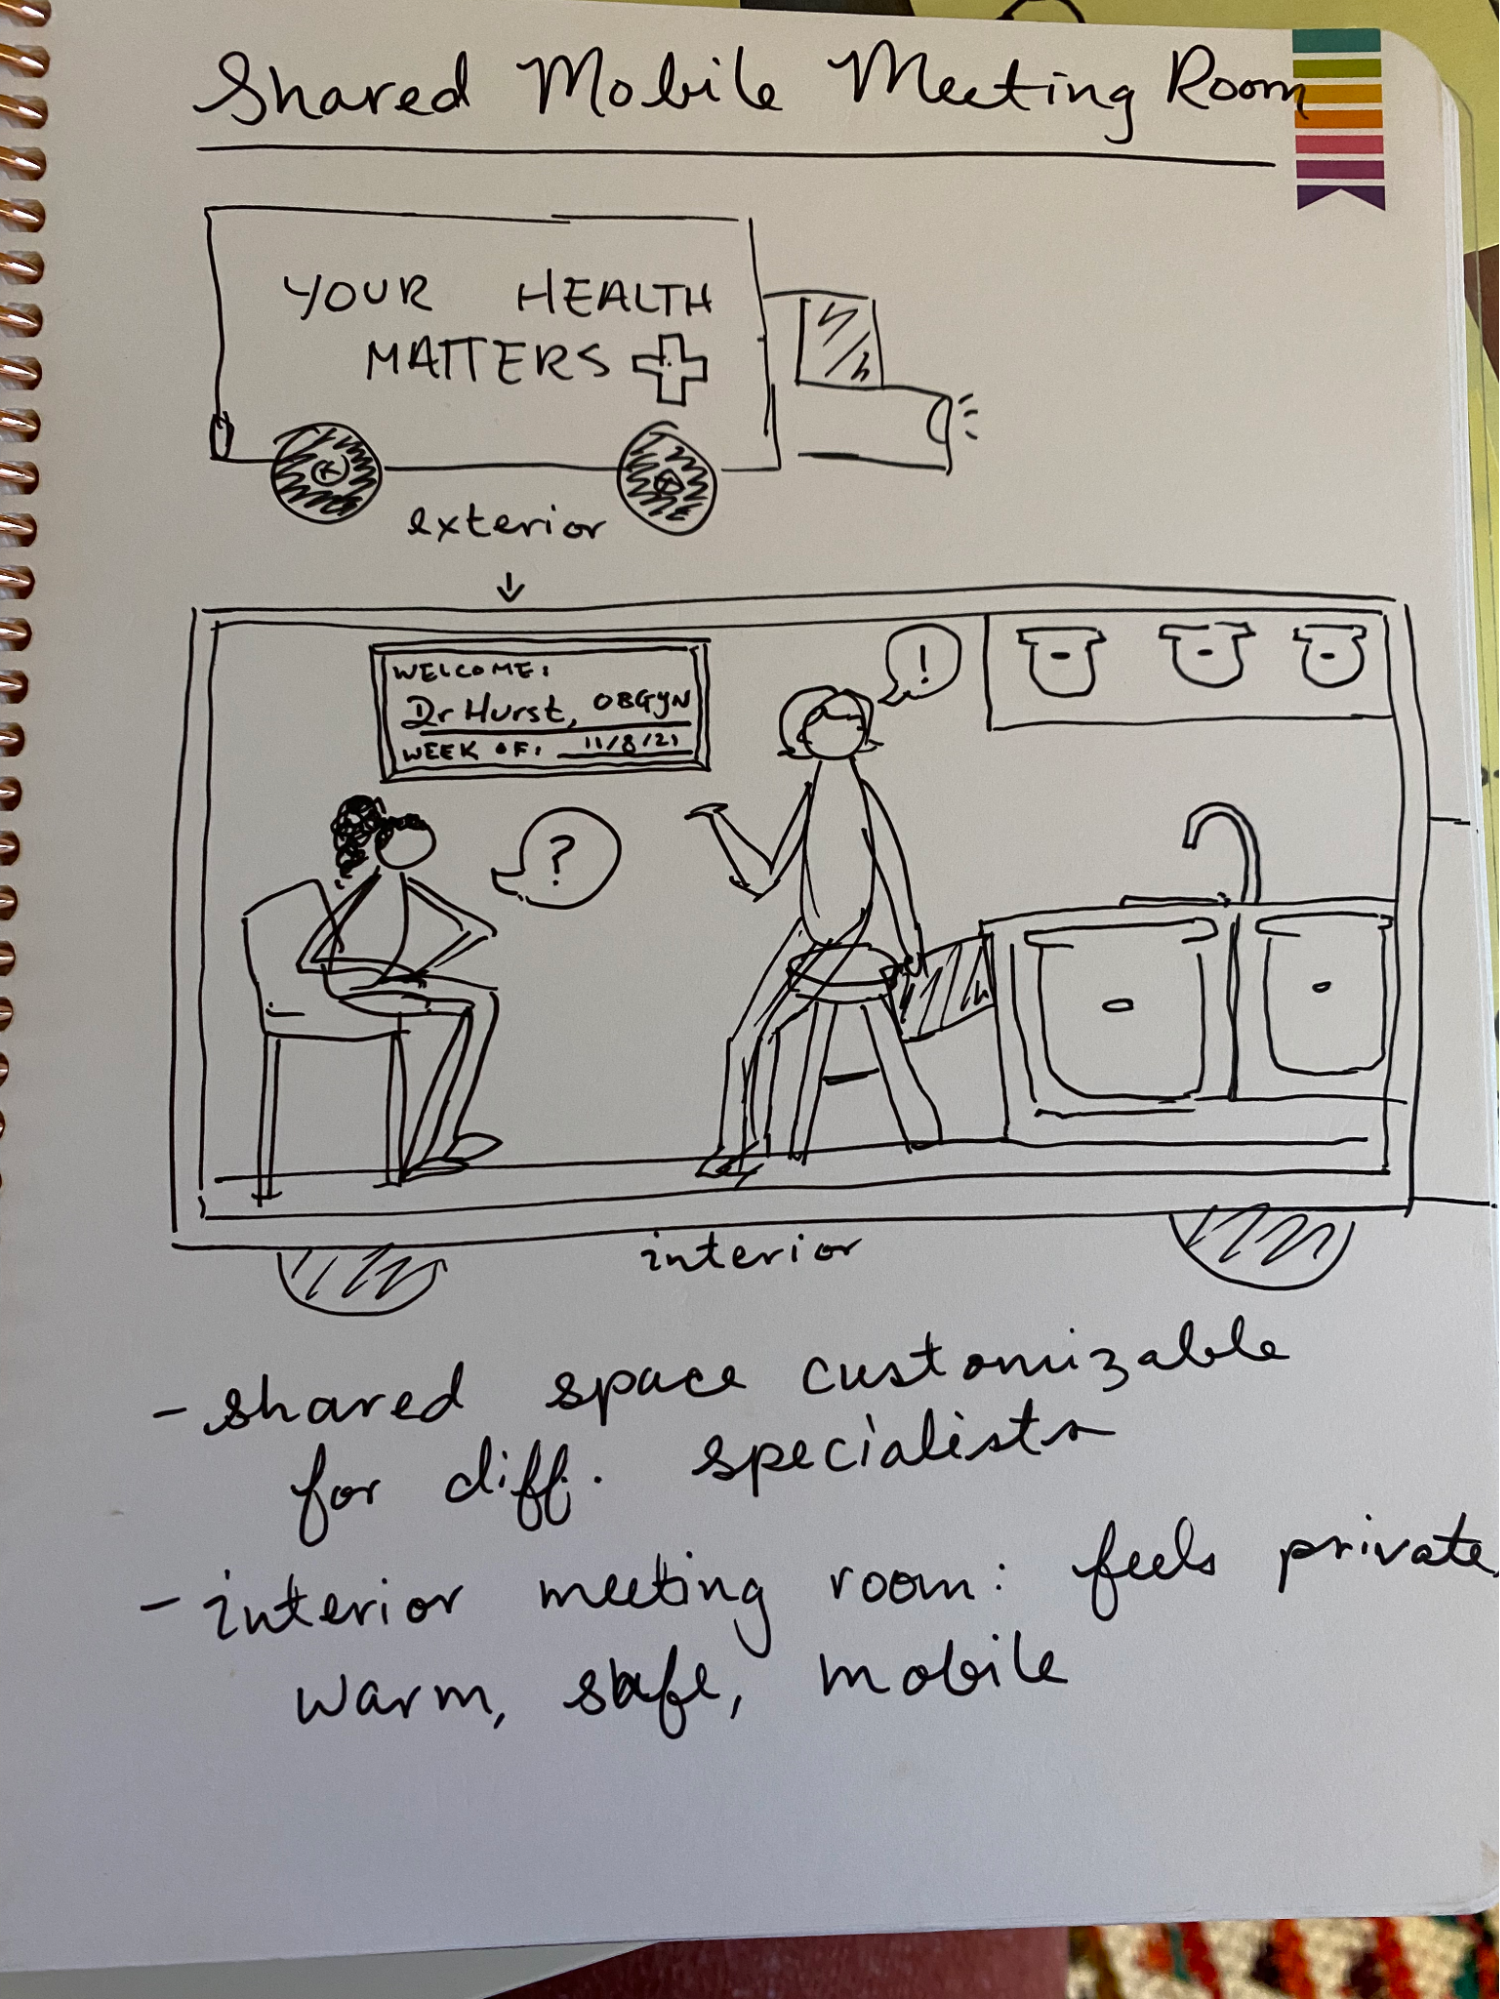 Shared Mobile Meeting Room
YOUR HEALTH
MATTERS
exterior
WELCOME:
Dr Hurst, OBGYN
WEEK OF: 11/8/21
!
?
interior
- shared space customizable
for diff. specialists
- interior meeting room: feels private,
warm, safe, mobile